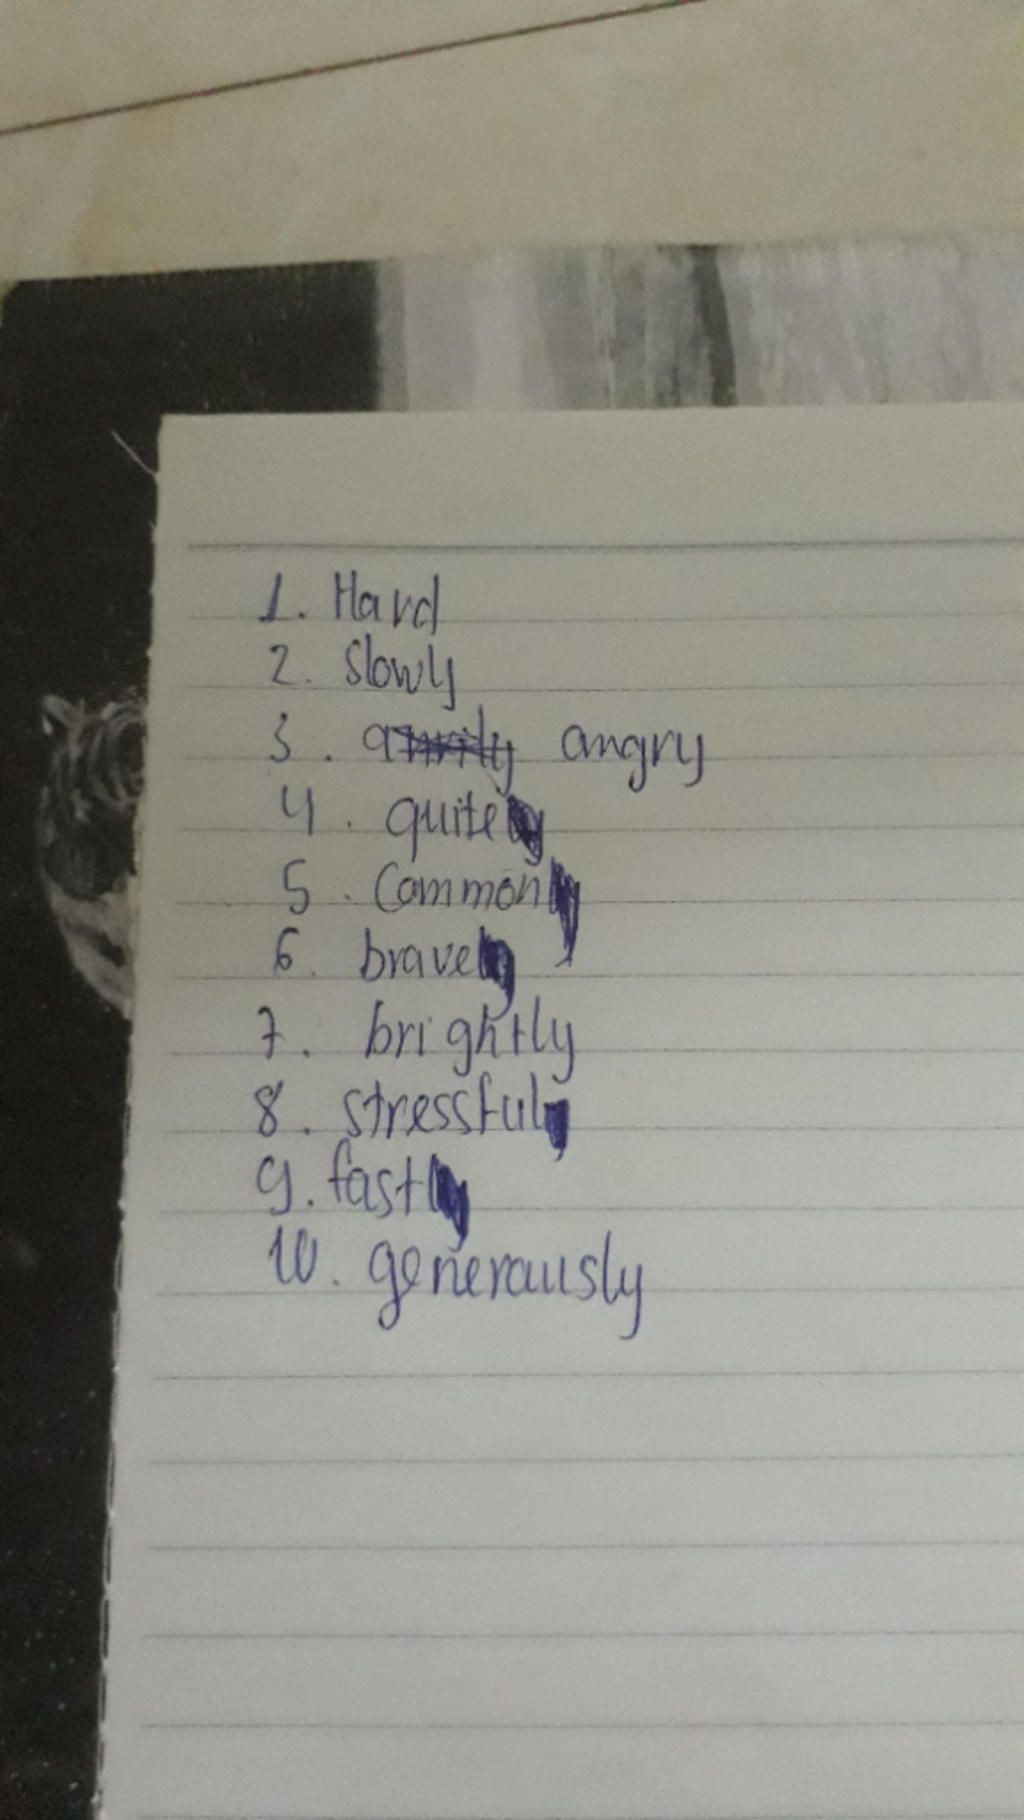 1. Hard
2. slowly
3. angry
4. quite
5. Common
6. brave
7. brightly
8. stressful
9. fast
10. generausly